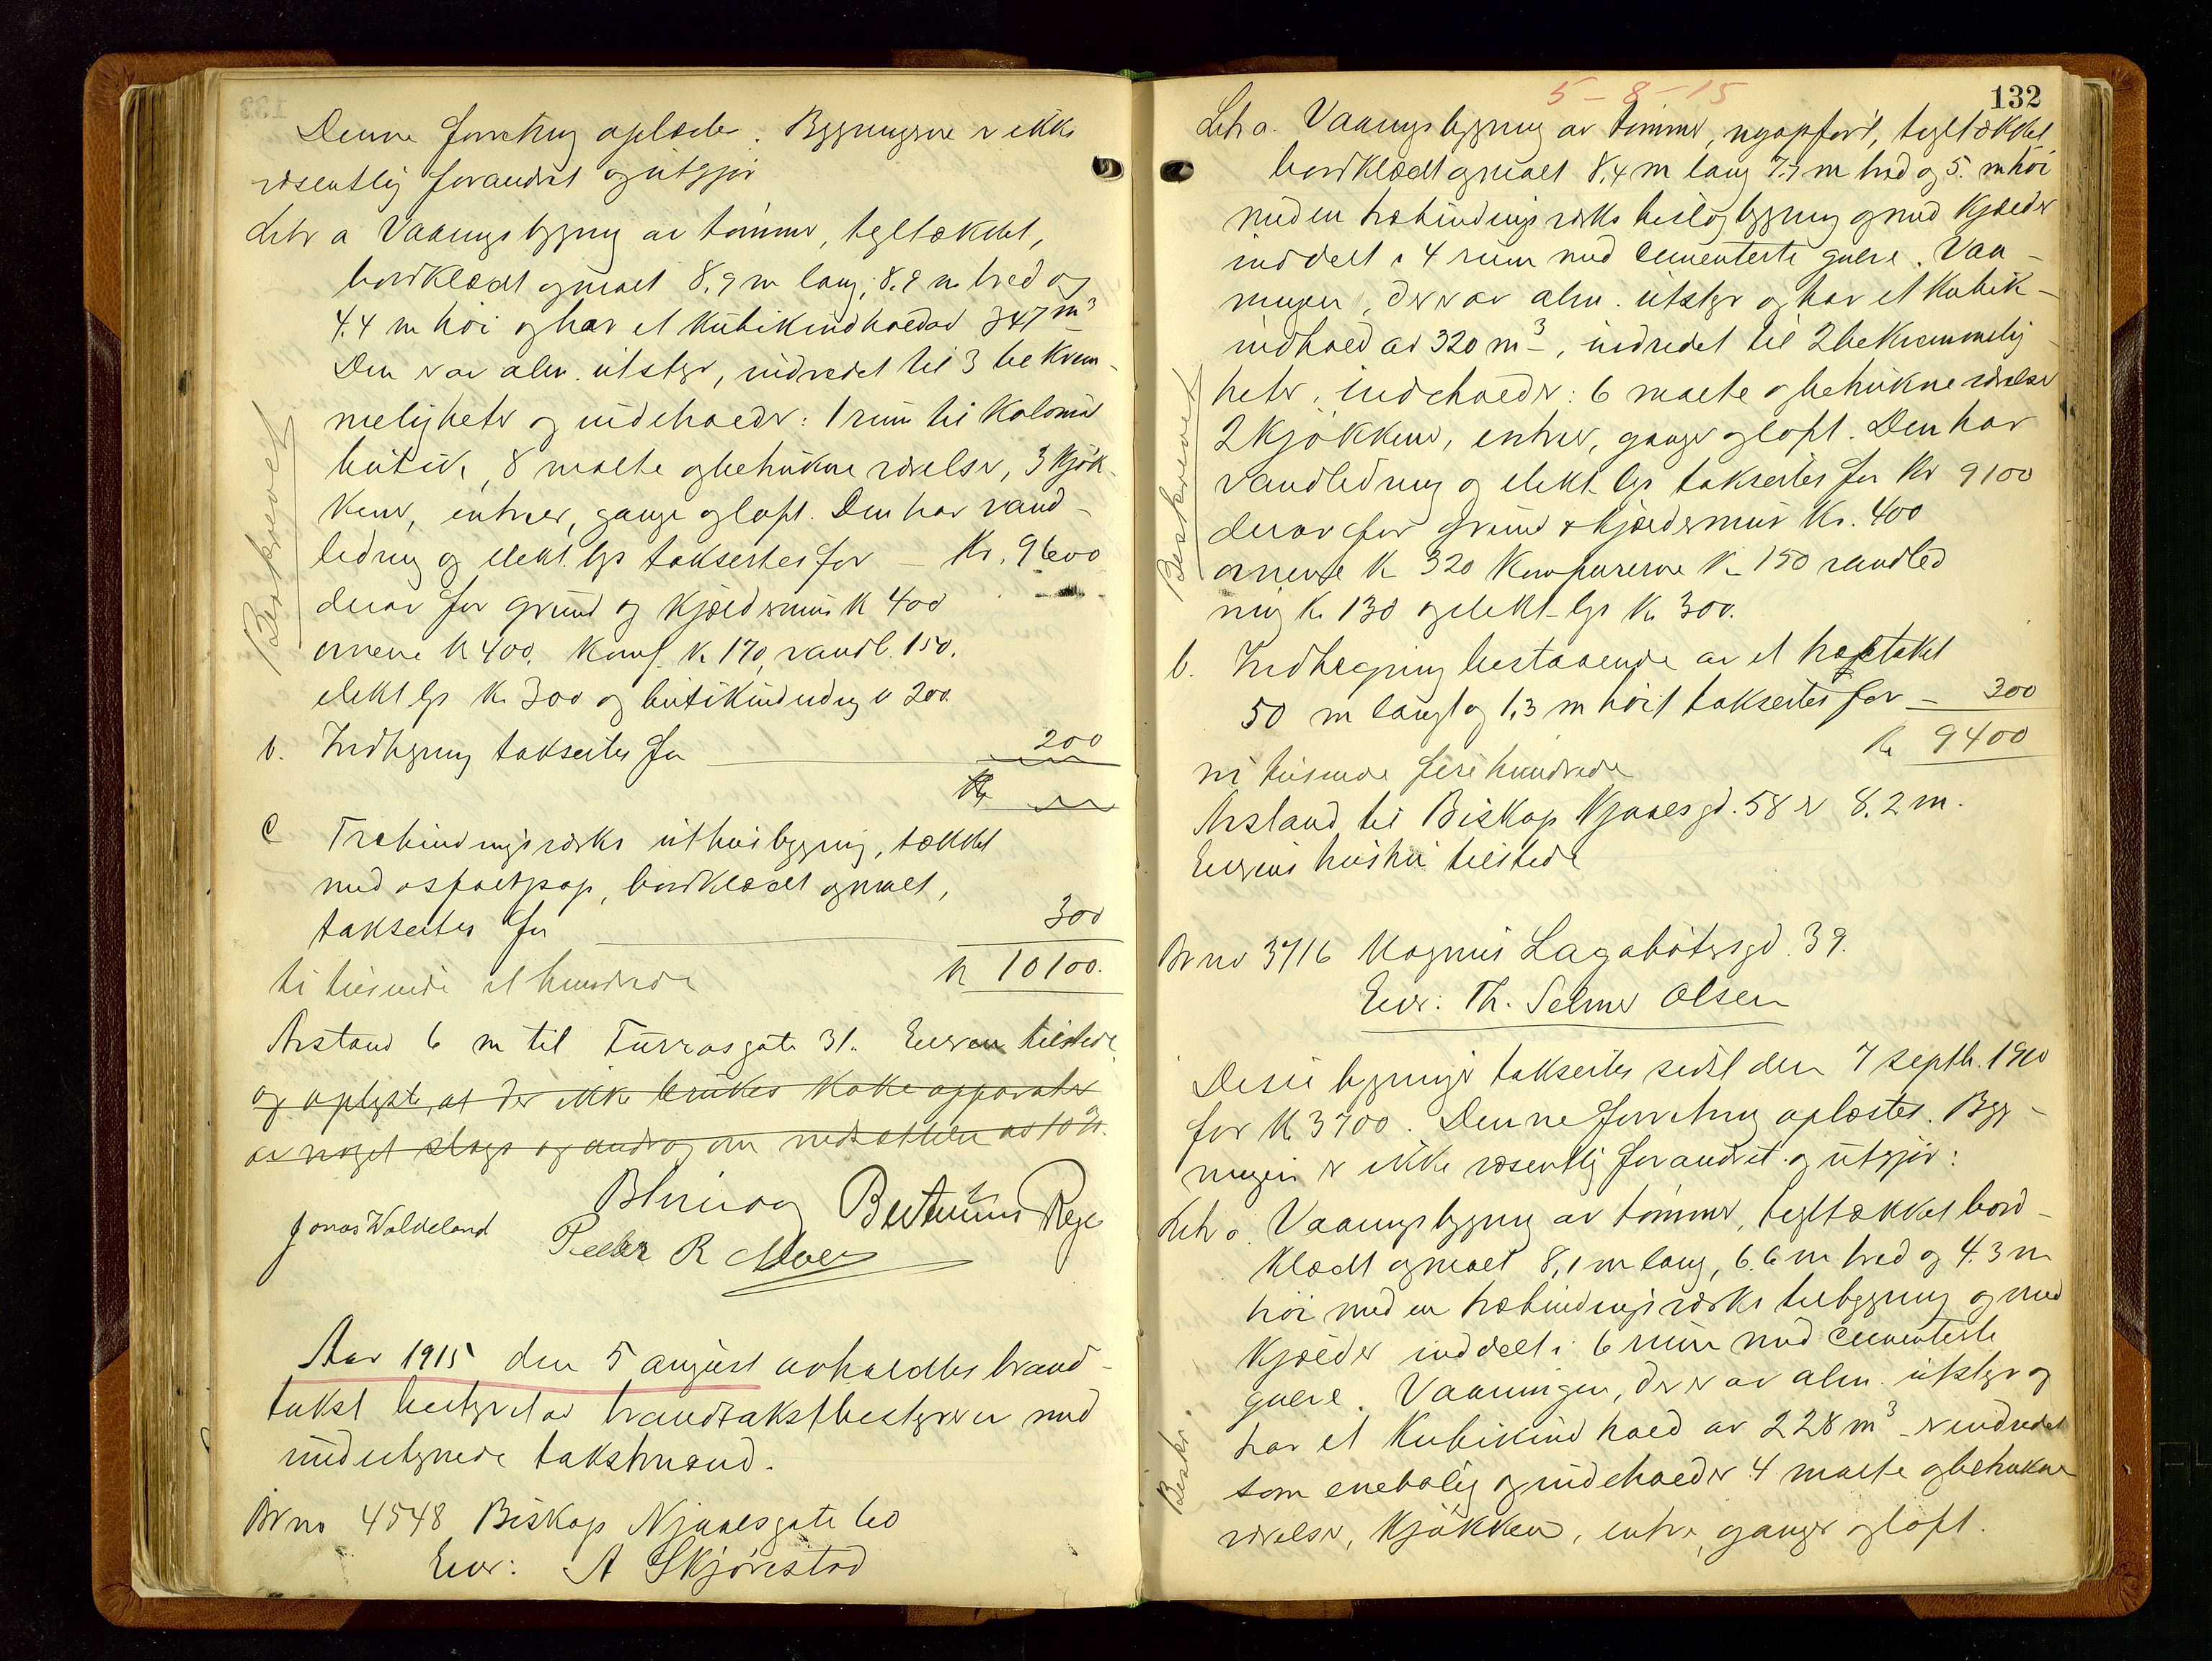 Denne forretning oplæstes. Bygningerne er ikke
væsentlig forandret og utgjør
Litr a Vaaningsbygning av tømmer, tegltækket,
bordklædt og malt 8.9 m lang, 8.9 m bred og
4.4 m høi og har et kubikindhold av 347 m³
Den er av alm. utstyr, indredet til 3 bekvem-
meligheter og indeholder: 1 rum til kolonial
butik, 8 malte og betrukne værelser, 3 kjøk-
kener, entreer, gange og loft. Den har vand-
ledning og elekt. lys taksertes for – Kr. 9600
derav for grund og kjældermur Kr 400
ovnene Kr 400, komf. Kr 170, vandl. 150,
elekt lys Kr 300 og butikindredng Kr 200
Beskrevet
b. Indhegning taksertes for 200
Kr
c Træbindingsverks uthusbygning, tækket
med asfaltpap, bordklædt og malt,
taksertes for 300
ti tusinde et hundrede Kr 10100.
Avstand 6 m til Furrasgate 31. Eieren tilstede
og oplyste, at der ikke brukes kokeapparater
av noget slags og androg om nedsættelse av 10%.
Jonas Waldeland Peder R Moe Bertinius Rege
Aar 1915 den 5 august avholdtes brand-
takst bestyret av brandtakstbestyreren med
undertegnede takstmænd.
Br no 4548 Biskop Njaalsgate 60
Eier: A Skjørestad
5-8-15
132
Litr a. Vaaningsbygning av tømmer, nyopført, tegltækket
bordklædt og malt 8.4 m lang 7.7 m bred og 5. m høi
med en træbindingsverks tilbygning og med kjælder
inddelt i 4 rum med cementerte gulve. Vaa-
ningen, der er av alm. utstyr og har et kubik-
indhold av 320 m³, indredet til 2 bekvemmelig-
heter, indeholder: 6 malte og betrukne værelser
2 kjøkkener, entreer, ganger og loft. Den har
vandledning og elekt. lys taksertes for Kr 9100
derav for grund & kjældermur Kr. 400
ovnene Kr 320 komfurerne Kr 150 vandled
ning Kr 130 og elekt. lys Kr 300.
Beskrevet
b. Indhegning bestaaende av et træstaket
50 m langt og 1,3 m høit taksertes for – 300
Kr 9400
ni tusinde firehundrede
Avstand til Biskop Njaalsgd. 58 er 8.2 m.
Eierens hustru tilstede
Br no 3716 Magnus Lagabøtersgd. 39.
Eier: Th. Selmer Olsen
Disse bygninger taksertes sidst den 7 septb. 1910
for Kr 3700. Denne forretning oplæstes. Byg-
ningen er ikke væsentlig forandret og utgjør:
Litr a. Vaaningsbygning av tømmer, tegltækket bord-
klædt og malt 8,1 m lang, 6.6 m bred og 4.3 m
høi med en træbindingsverks tilbygning og med
kjælder inddelt i 6 rum med cementerte
gulve. Vaaningen, der er av alm. utstyr og
har et kubikindhold av 228 m³ – er indredet
som enebolig og indeholder 4 malte og betrukne
værelser, kjøkken, entre, ganger og loft.
Beskr